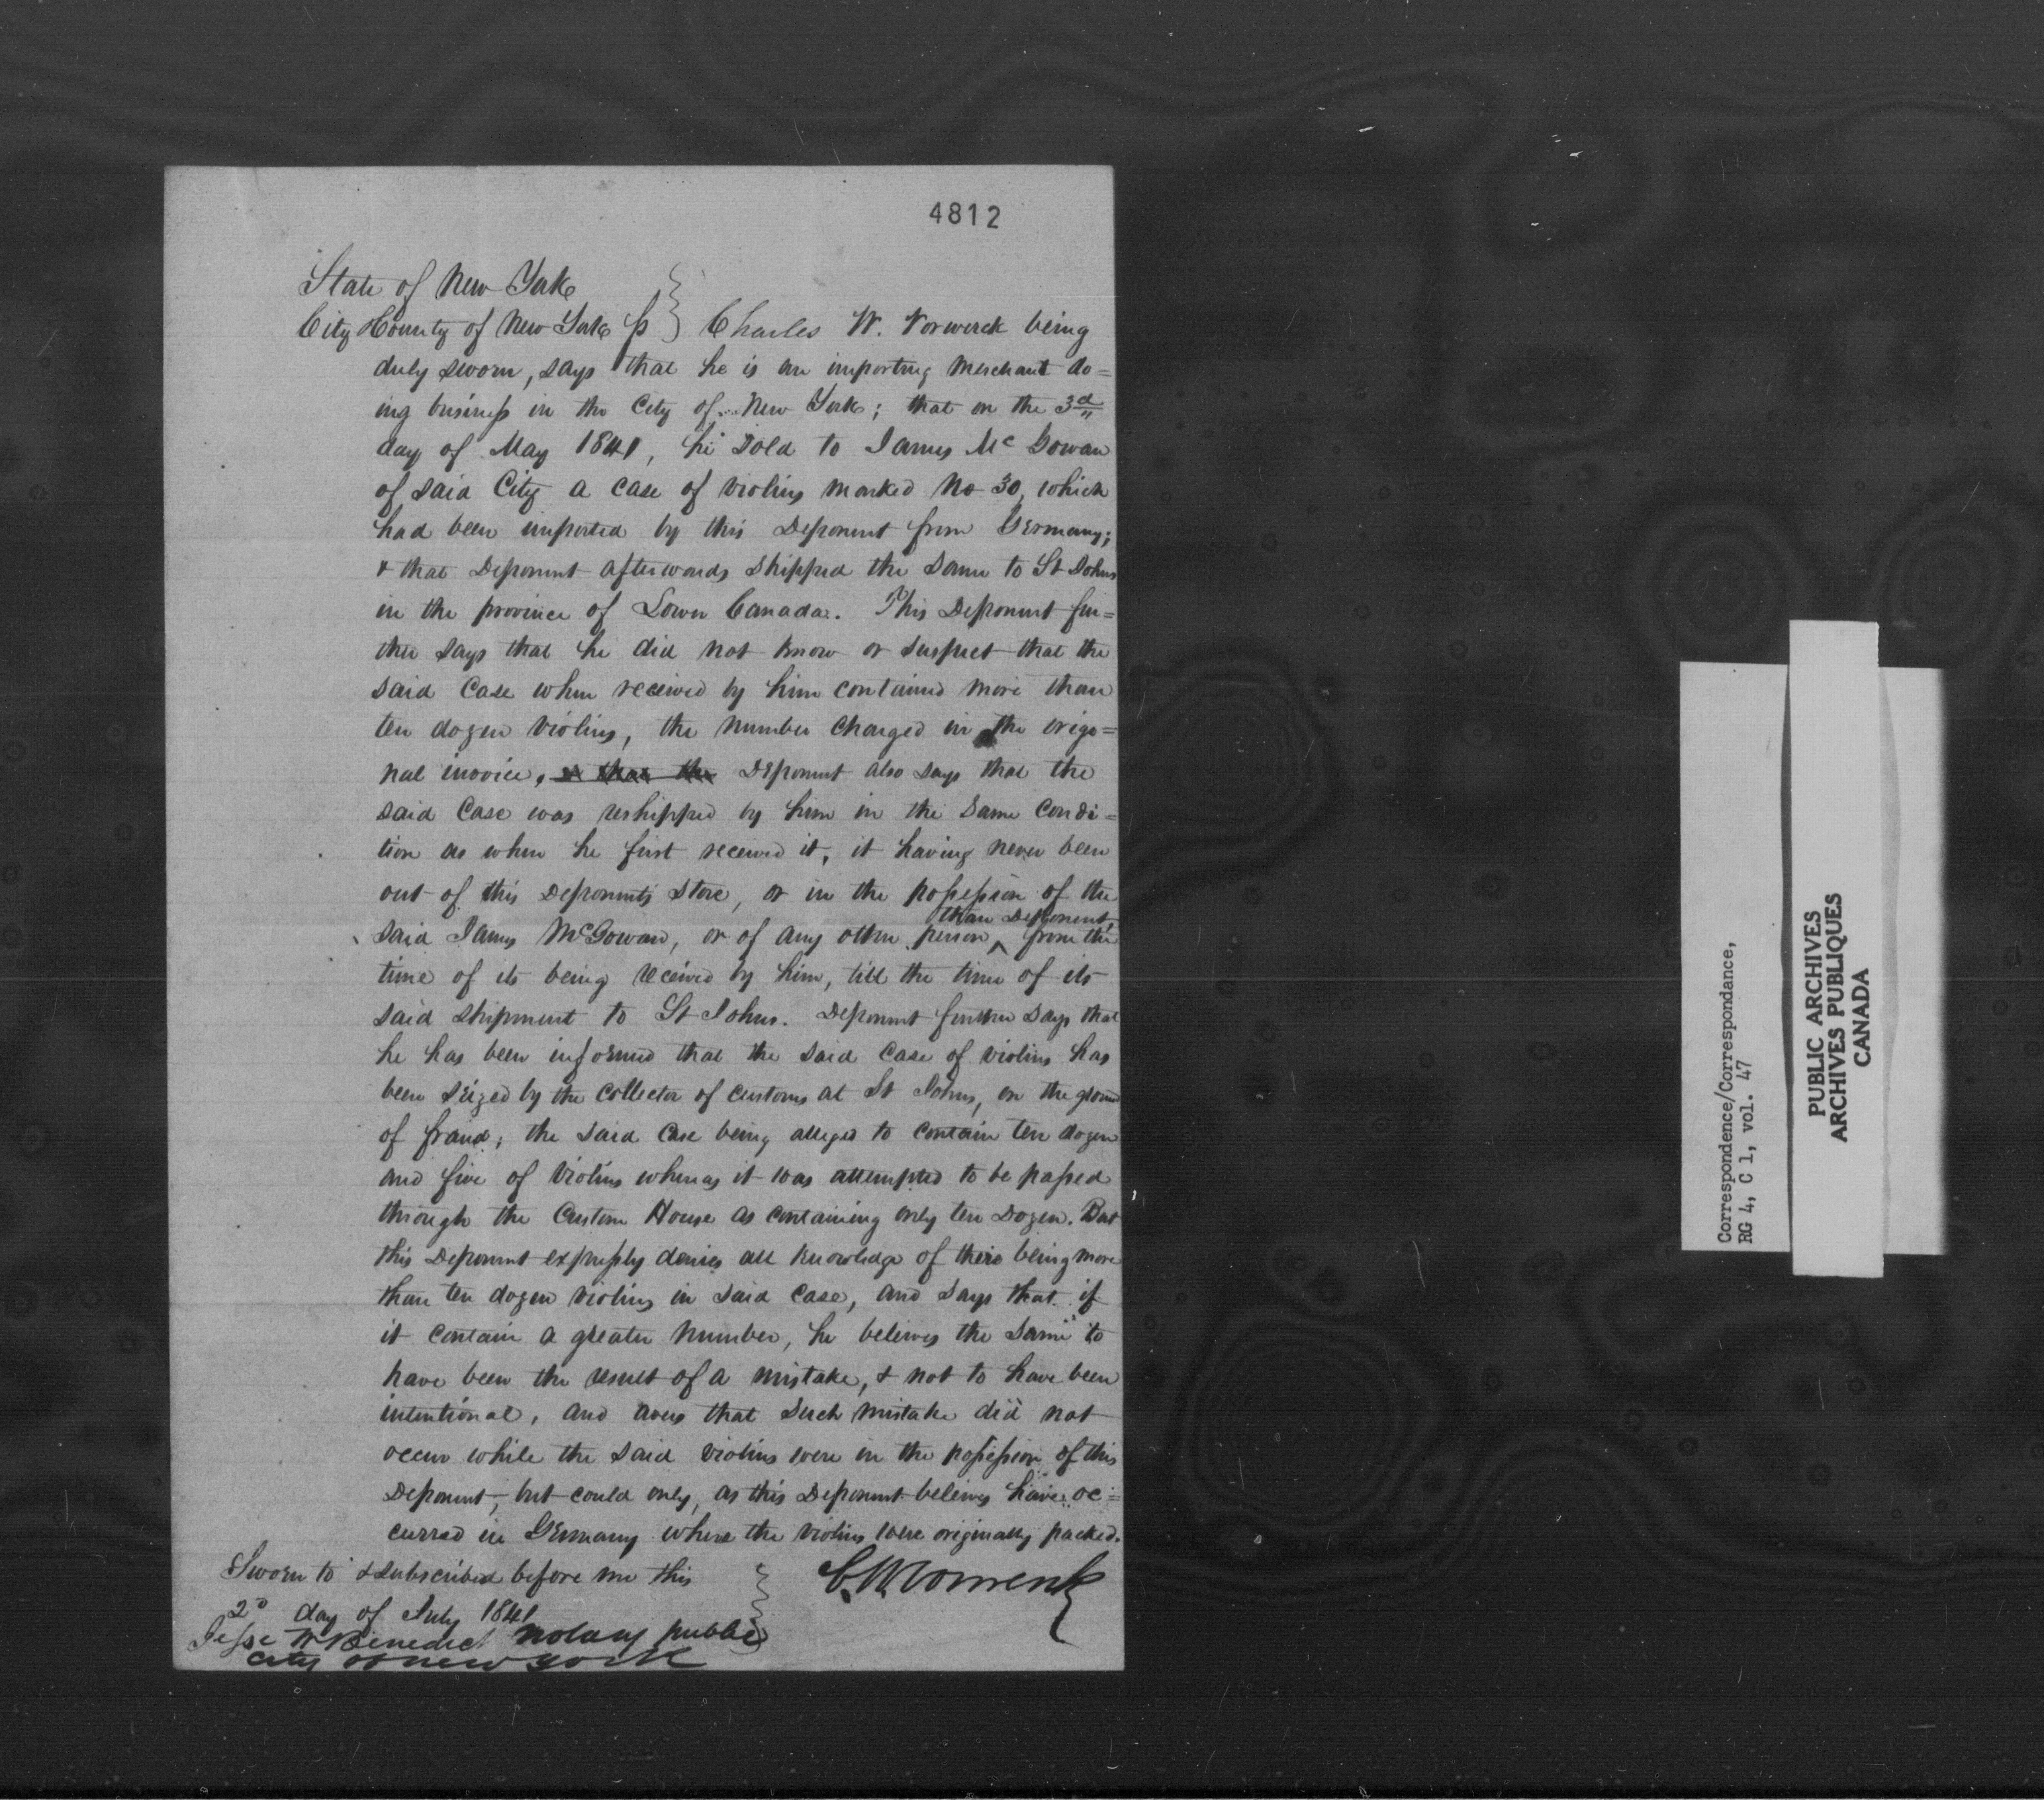 4812
State of New York
City & County of New York ss } Charles W. Vorwerck being
duly sworn, says that he is an importing merchant do=
ing business in the City of New York; that on the 3d
day of May 1841, he sold to James McGowan
of said City a case of violins marked No 30, which
had been imported by this Deponent from Germany;
& that Deponent afterwards shipped the same to St Johns
in the province of Lower Canada. This Deponent fur=
ther says that he did not know or suspect that the
said case when received by him contained more than
ten dozen violins, the number charged in the origi=
nal invoice, & that the Deponent also says that the
said case was reshipped by him in the same condi=
tion as when he first received it, it having never been
out of this Deponents store, or in the possession of the
said James McGowan, or of any other person ^ than Deponent from the
time of its being received by him, till the time of its
said shipment to St Johns. Deponent further says that
he has been informed that the said case of violins has
been seized by the collector of customs at St Johns, on the ground
of fraud; the said case being alleged to contain ten dozen
and five of violins whereas it was attempted to be passed
through the Custom House as containing only ten dozen. But
this Deponent expressly denies all knowledge of there being more
than ten dozen violins in said case, and says that if
it contain a greater number, he believes the same to
have been the result of a mistake, & not to have been
intentional, and avers that such mistake did not
occur while the said violins were in the possession of this
Deponent, but could only, as this Deponent believes have oc=
curred in Germany where the violins were originally packed.
Sworn to & subscribed before me this
2d day of July 1841
Jesse W Benedict Notary public
City of New York
C. W. Vorwerck
Correspondence/Correspondance,
RG 4, C 1, vol. 47
PUBLIC ARCHIVES
ARCHIVES PUBLIQUES
CANADA